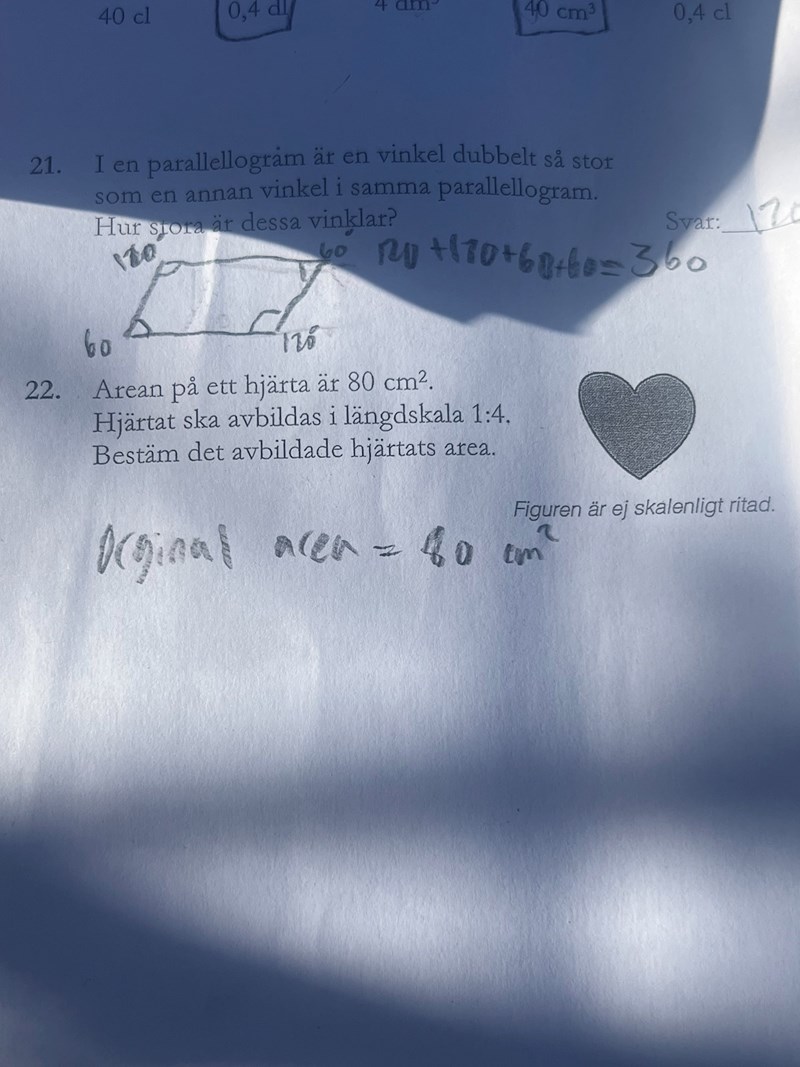 40 cl 0,4 dl 4 dm³ 40 cm³ 0,4 cl
21. I en parallellogram är en vinkel dubbelt så stor
som en annan vinkel i samma parallellogram.
Hur stora är dessa vinklar? Svar:
120° 60° 120+120+60+60=360
60 120°
22. Arean på ett hjärta är 80 cm².
Hjärtat ska avbildas i längdskala 1:4.
Bestäm det avbildade hjärtats area.
Figuren är ej skalenligt ritad.
Orginal area = 80 cm²